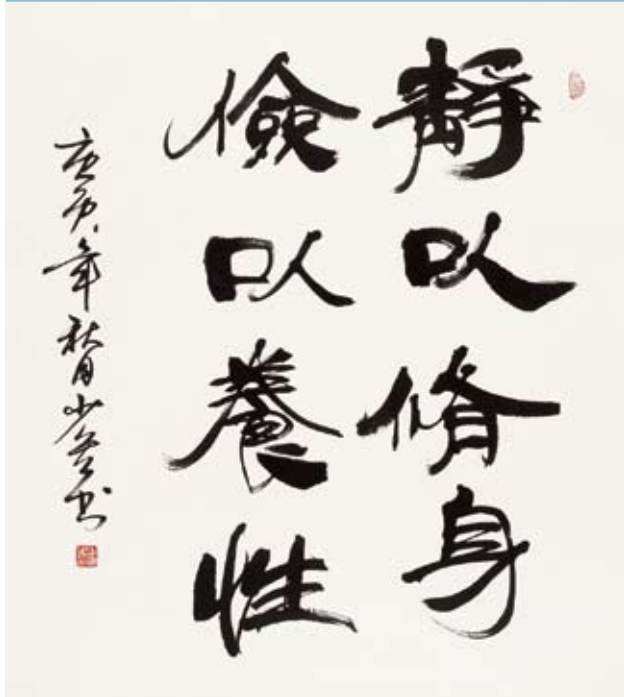 靜以脩身
儉以養性
庚寅年秋月少